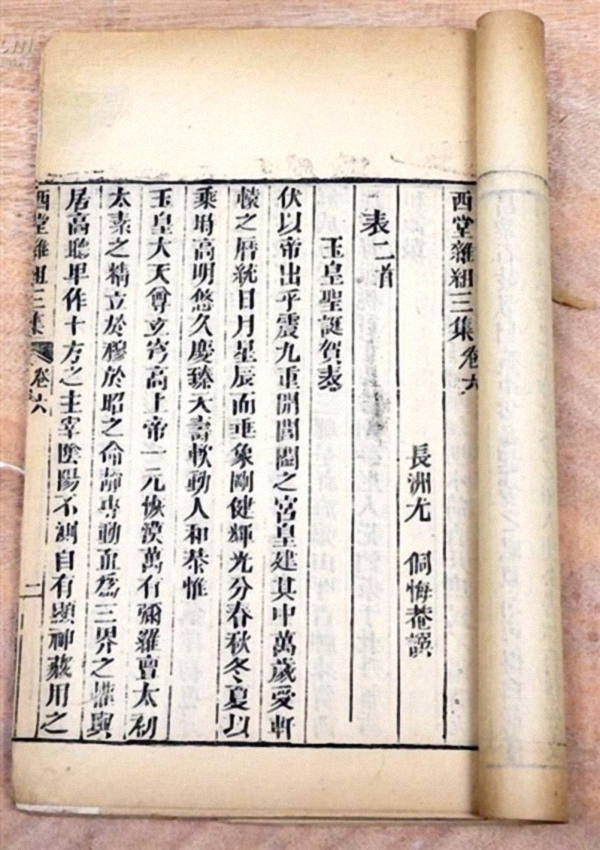 西堂雜組三集卷六
長洲尤 侗悔菴譔
表二首
玉皇聖誕賀表
伏以帝出乎震九重開閶闔之宮皇建其中萬歲受軒
轅之曆統日月星辰而垂象剛健輝光分春秋冬夏以
乘時高明悠久慶臻天壽歡動人和恭惟
玉皇大天尊立穹高上帝一元恢漠萬有彌羅亶太初
太素之精立於穆於昭之命靜專動直爲三界之權輿
居高聽卑作十方之主宰陰陽不測自有顯神藏用之
西堂雜組三集 卷六 二